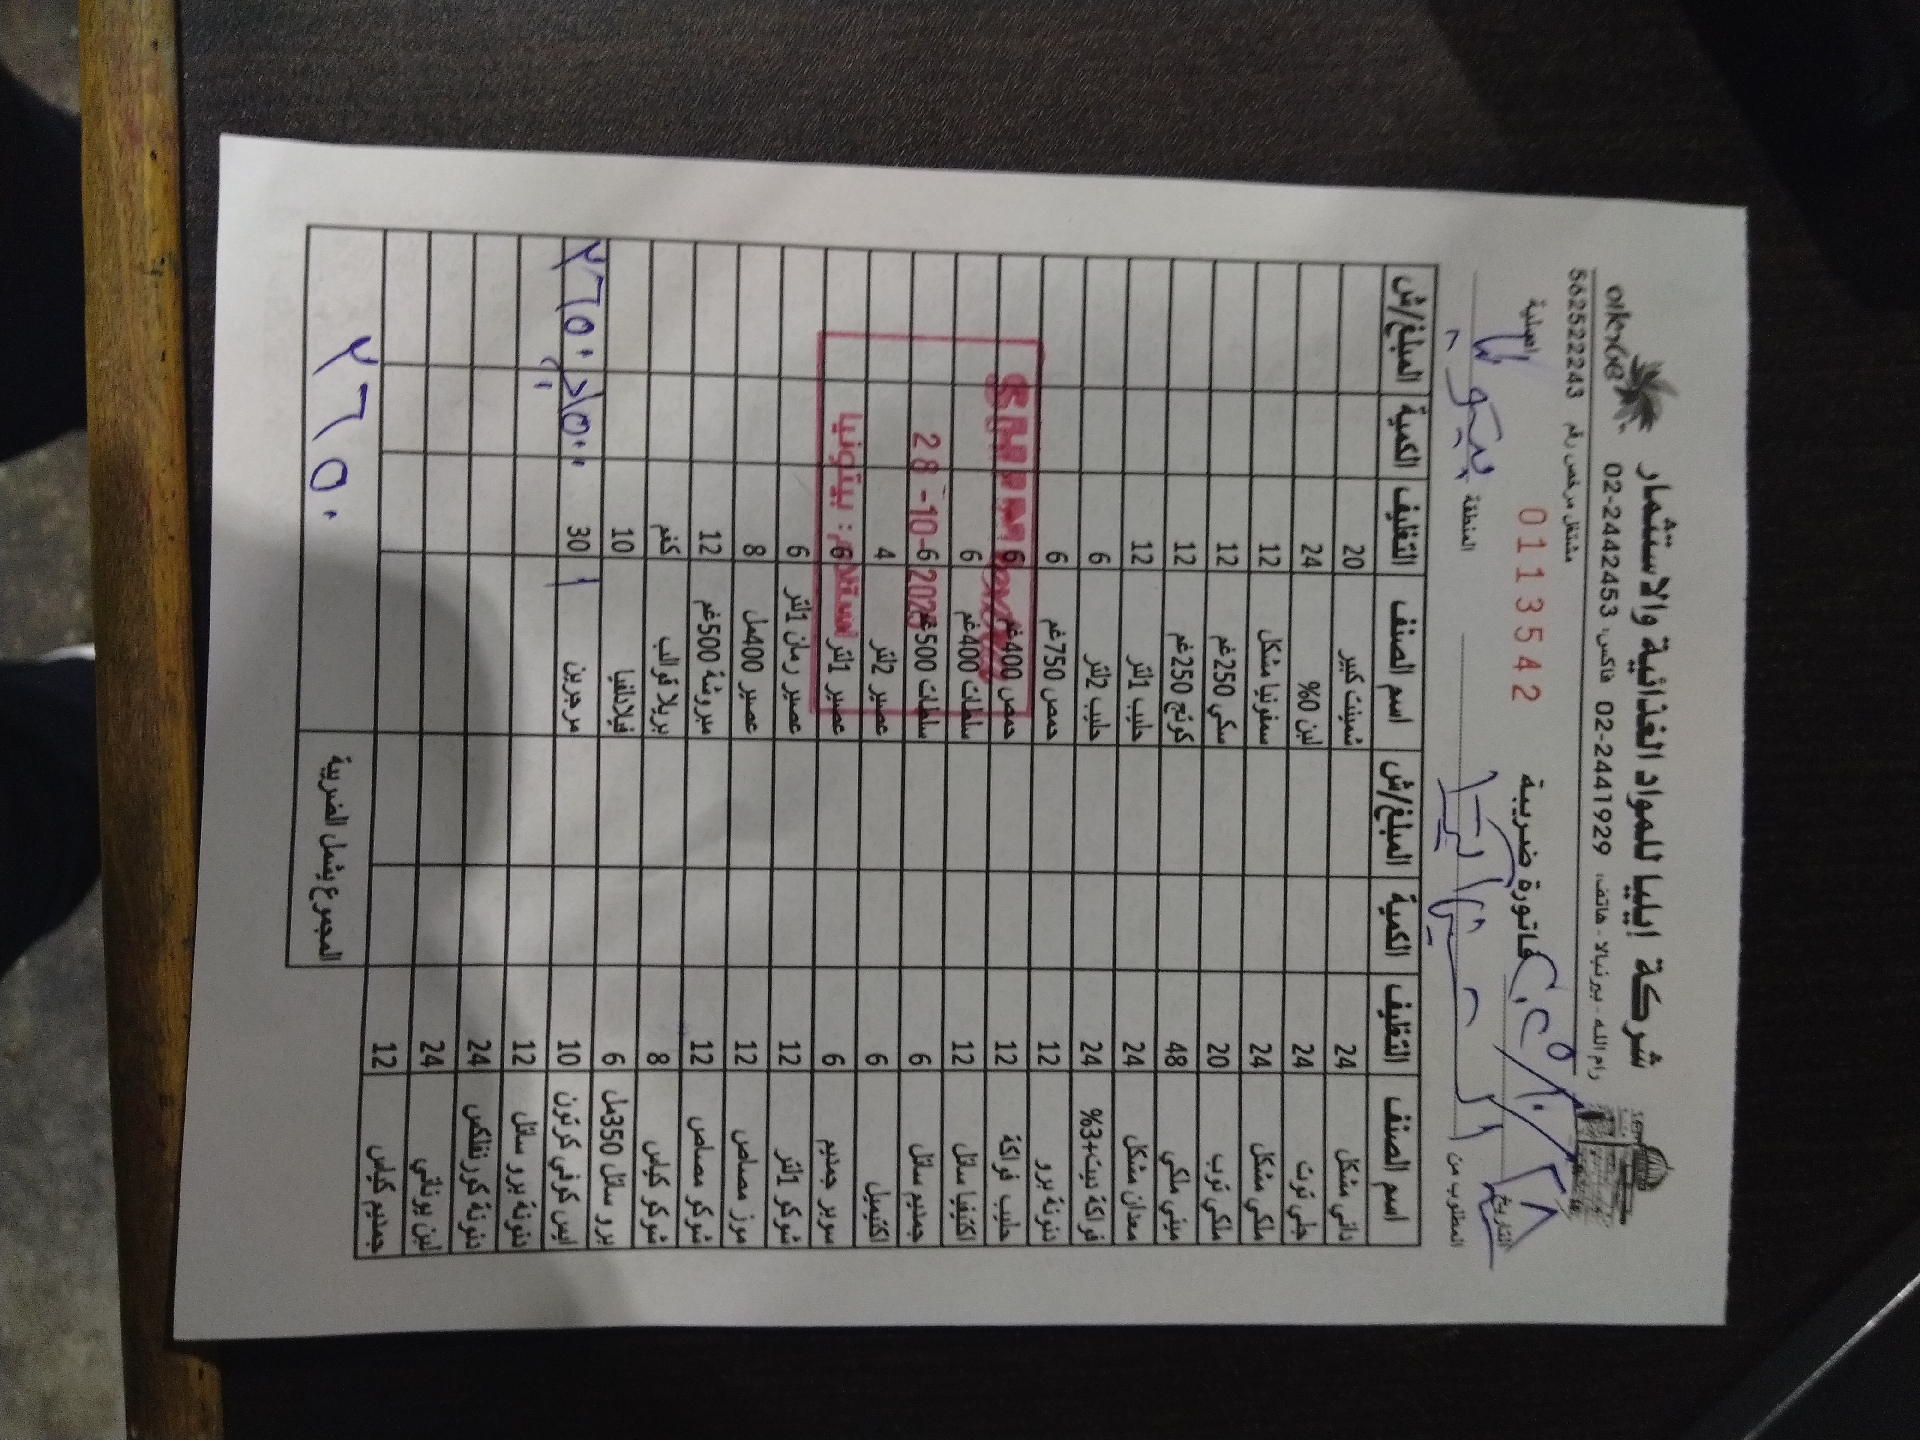 شركة ايليا للمواد الغذائية والاستثمار
رام الله - بير نبالا - هاتف: 02-2441929 فاكس: 02-2442453
مشتغل مرخص رقم 562522243
فاتورة ضريبية 0113542 اصلية
التاريخ ٢٨/١٠/٢٠٢٥
المطلوب من
المنطقة
اسم الصنف التغليف الكمية المبلغ/ش اسم الصنف التغليف الكمية المبلغ/ش
داني مشكل 24 شمينت كبير 20
جلي توت 24 لبن 0% 24
ملكي مشكل 24 سمفونيا مشكل 12
ملكي توب 20 سكي 250غم 12
ميني ملكي 48 كوتج 250غم 12
معدان مشكل 24 حليب 1لتر 12
فواكة نيت+3% 24 حليب 2لتر 6
دنونة برو 12 حمص 750غم 6
حليب فواكة 12 حمص 400غم 6
اكتفيا سائل 12 سلطات 400غم 6
جمديم سائل 6 سلطات 500غم 6
اكتيميل 6 عصير 2لتر 4
سوبر جمديم 6 عصير 1لتر 6
شوكو 1لتر 12 عصير رمان 1لتر 6
موز مصاص 12 عصير 400مل 8
شوكو مصاص 12 مبروشة 500غم 12
شوكو كياس 8 بريلا قوالب كغم
برو سائل 350مل 6 فيلادلفيا 10
ايس كوفي كرتون 10 مرجرين 30 ٢٦٥٠
دنونة برو سائل 12
دنونة كورنفلكس 24
لبن يوناني 24
جمديم كياس 12
المجموع يشمل الضريبة ٢٦٥٠
28-10-2025
مستلم: بيتونيا